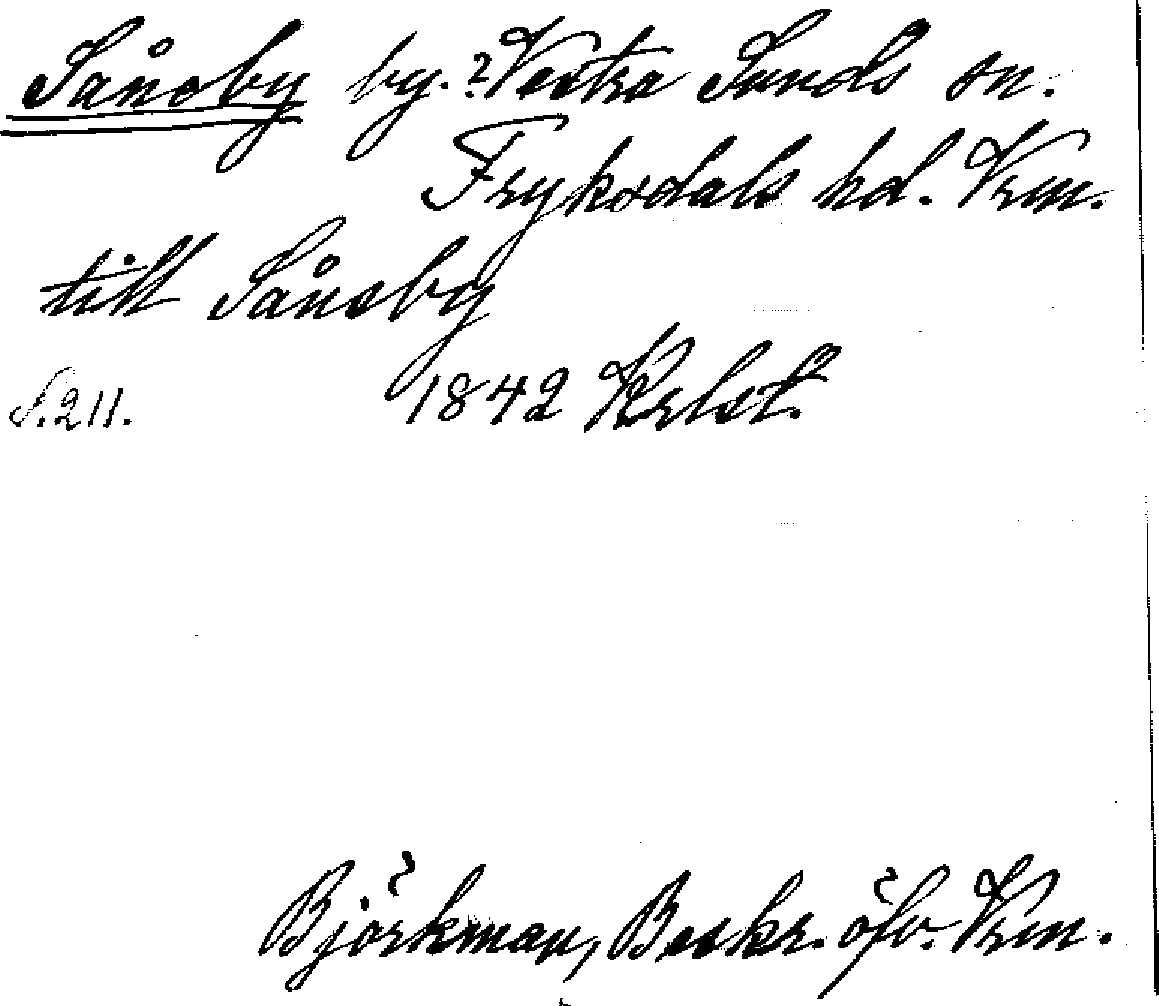 Sånsby by. ? Vestra Sunds sn.
Fryksdals hd. Vrm.
till Sånsby
S. 211. 1842 Krlst.
Björkman, Beskr. öfv. Vrm.